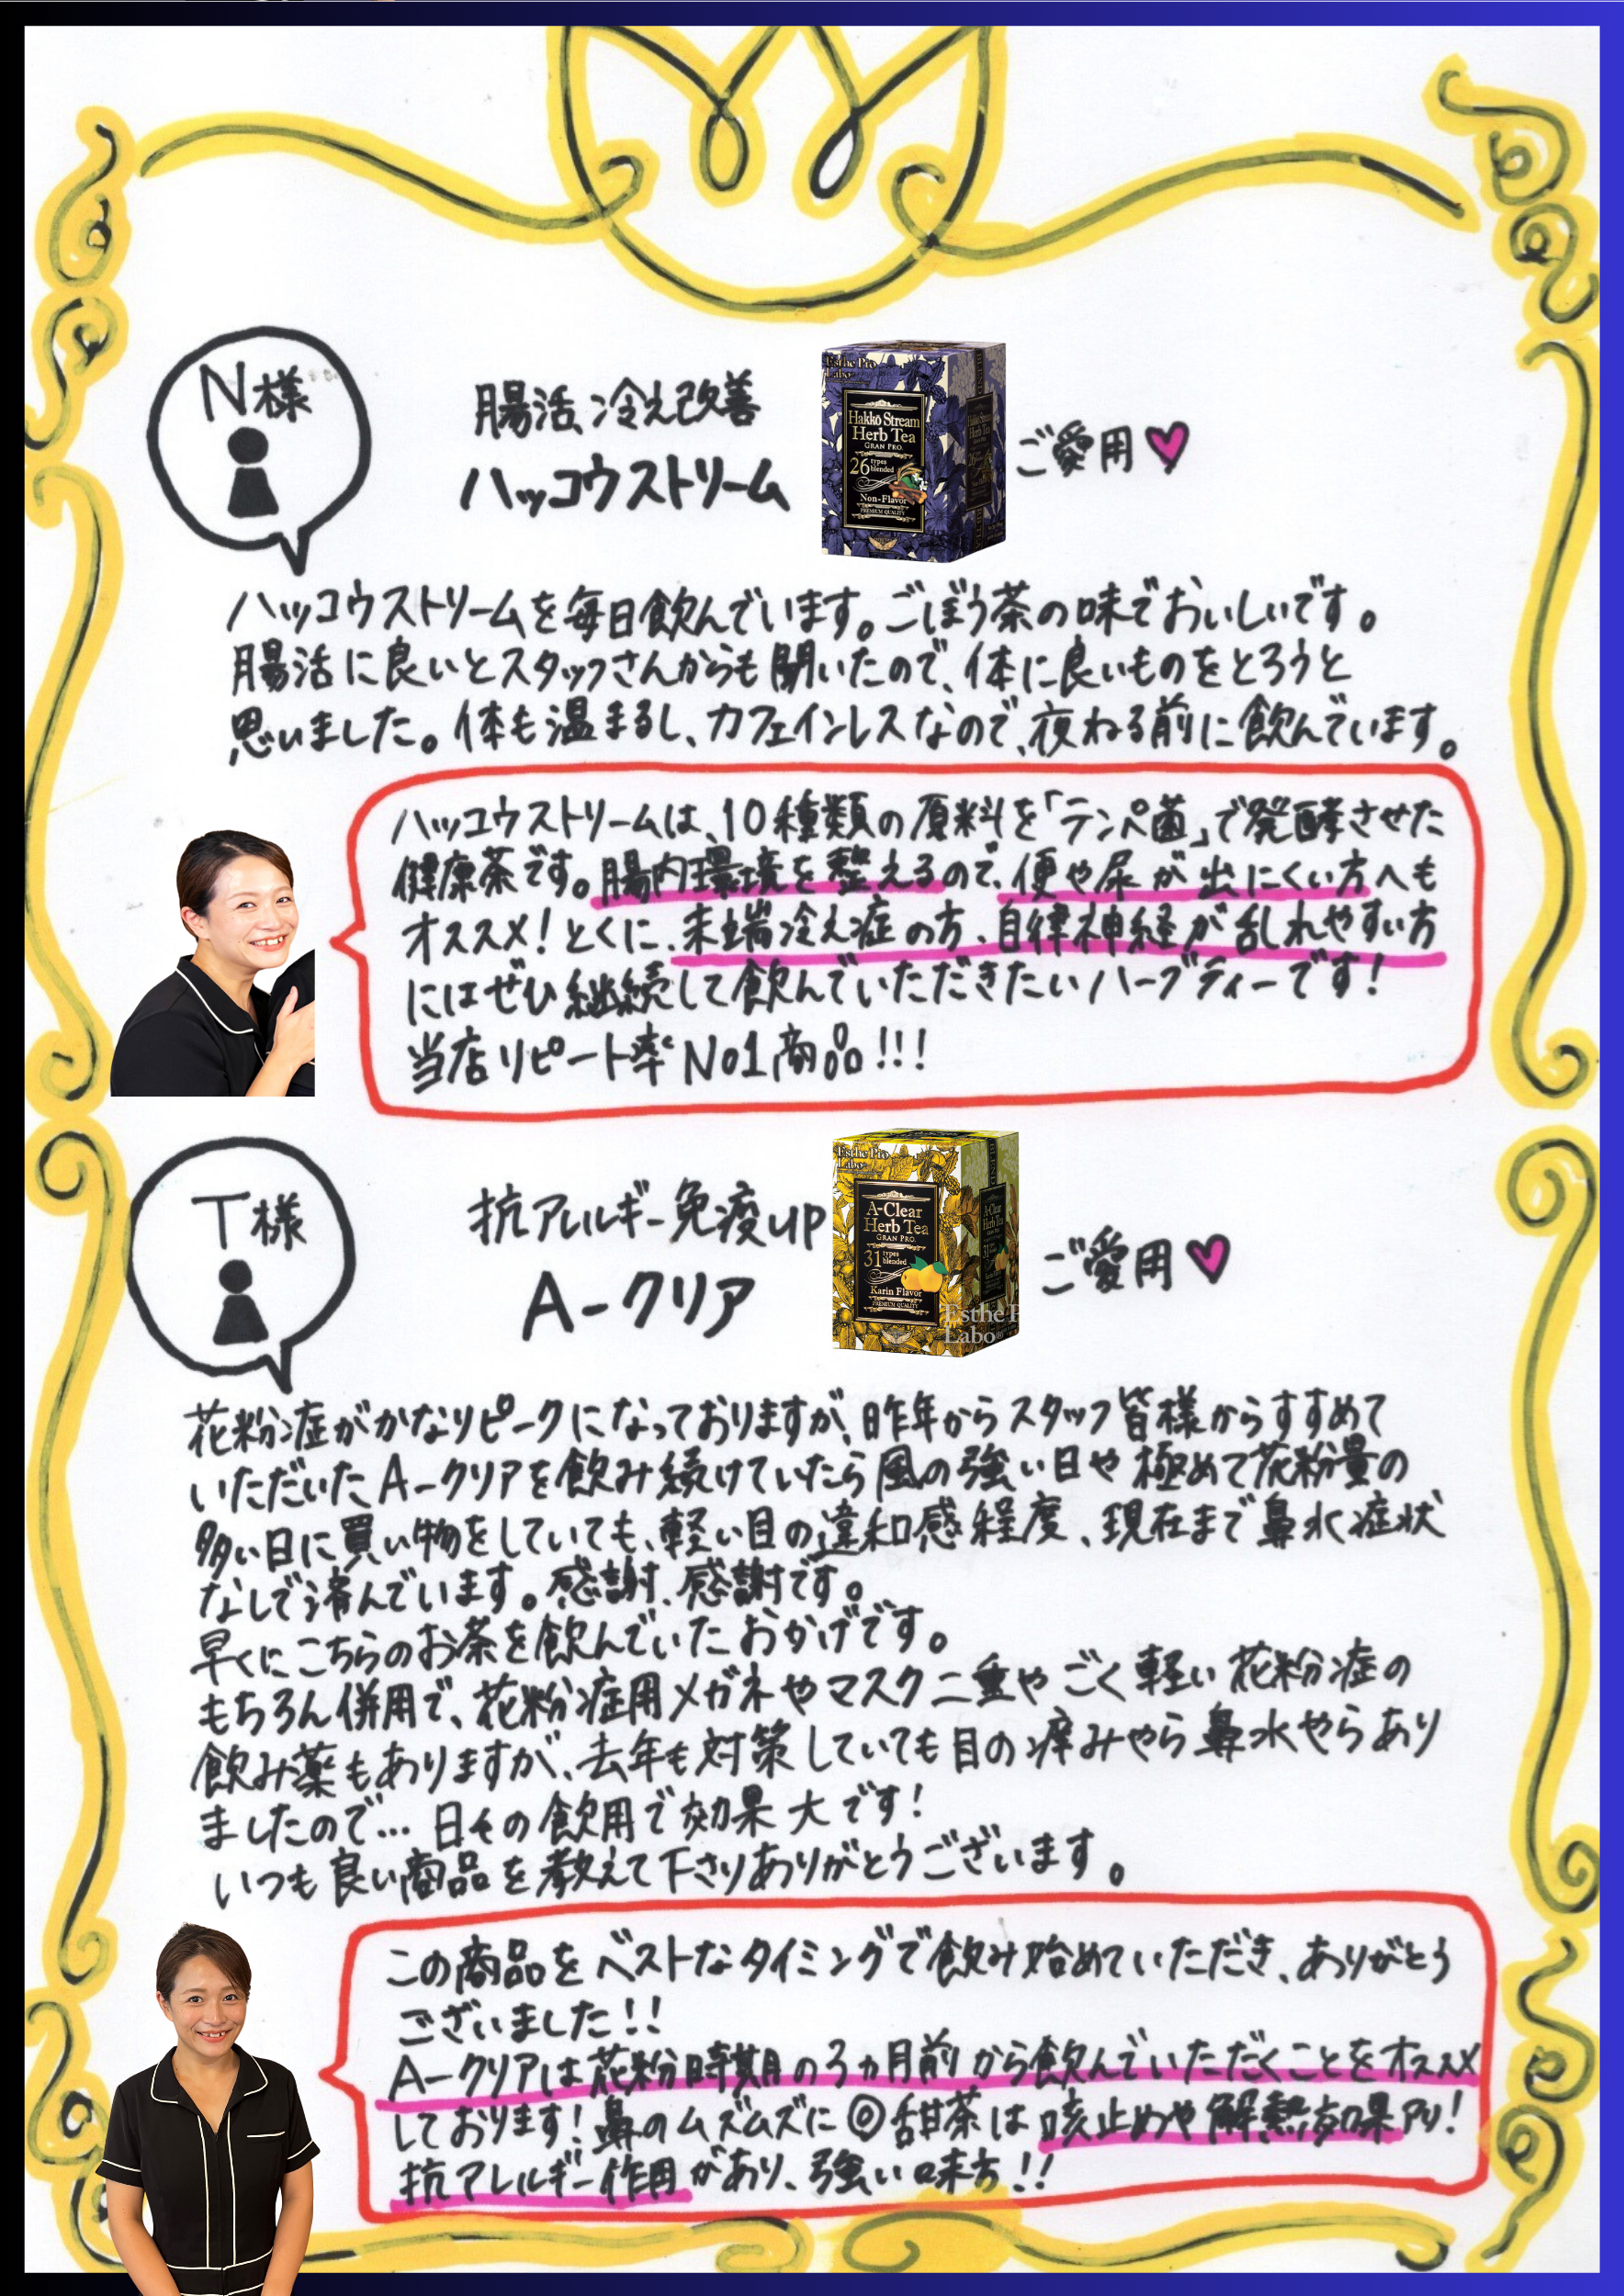 N様
腸活、冷え改善
ハッコウストリーム
Esthe Pro
Labo
Hakkō Stream
Herb Tea
GRAN PRO.
26 types blended
Non-Flavor
PREMIUM QUALITY
ご愛用
ハッコウストリームを毎日飲んでいます。ごぼう茶の味でおいしいです。
腸活に良いとスタッフさんからも聞いたので、体に良いものをとろうと
思いました。体も温まるし、カフェインレスなので、夜ねる前に飲んでいます。
ハッコウストリームは、10種類の原料を「テンペ菌」で発酵させた
健康茶です。腸内環境を整えるので、便や尿が出にくい方へも
オススメ!とくに、末端冷え症の方、自律神経が乱れやすい方
にはぜひ継続して飲んでいただきたいハーブティーです!
当店リピート率No1商品!!!
T様
抗アレルギー免疫up
A-クリア
Esthe Pro
Labo
A-Clear
Herb Tea
GRAN PRO.
31 types blended
Karin Flavor
PREMIUM QUALITY
Esthe P
Labo
ご愛用
花粉症がかなりピークになっておりますが、昨年からスタッフ皆様からすすめて
いただいたA-クリアを飲み続けていたら風の強い日や極めて花粉量の
多い日に買い物をしていても、軽い目の違和感程度、現在まで鼻水症状
なしで済んでいます。感謝、感謝です。
早くにこちらのお茶を飲んでいたおかげです。
もちろん併用で、花粉症用メガネやマスク二重やごく軽い花粉症の
飲み薬もありますが、去年も対策していても目の痒みやら鼻水やらあり
ましたので…日々の飲用で効果大です!
いつも良い商品を教えて下さりありがとうございます。
この商品をベストなタイミングで飲み始めていただき、ありがとう
ございました!!
A-クリアは花粉時期の3ヵ月前から飲んでいただくことをオススメ
しております!鼻のムズムズに◎甜茶は咳止めや解熱効果アリ!
抗アレルギー作用があり、強い味方!!